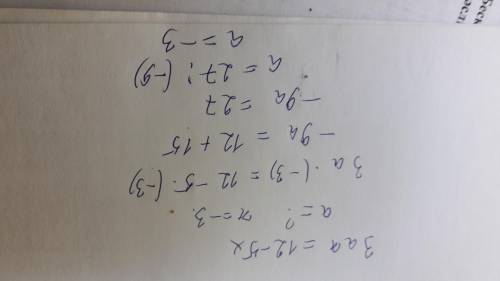 3ax = 12-5x
a = ? x = -3.
3a · (-3) = 12 - 5 · (-3)
-9a = 12 + 15
-9a = 27
a = 27 : (-9)
a = -3